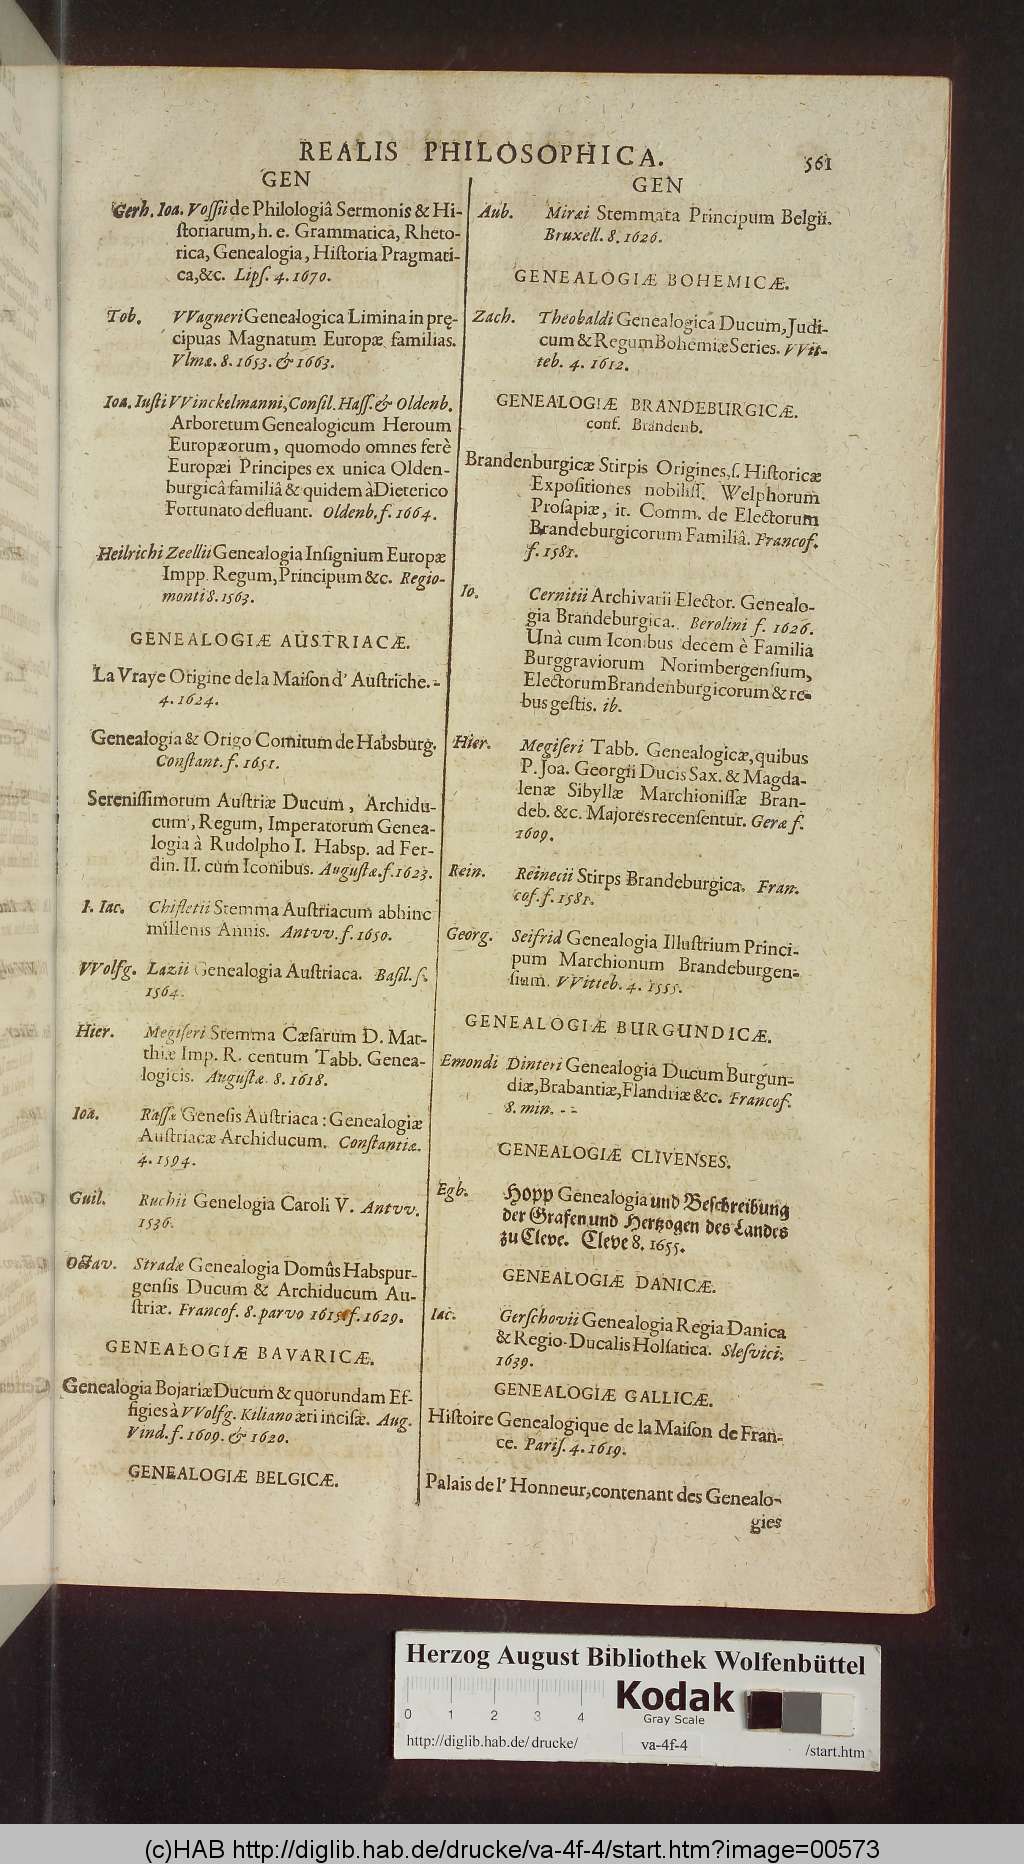 REALIS PHILOSOPHICA.
561
GEN
Gerh. Ioa. Vossii de Philologiâ Sermonis & Hi-
ſtoriarum, h. e. Grammatica, Rheto-
rica, Genealogia, Hiſtoria Pragmati-
ca, &c. Lipſ. 4. 1670.
Tob. VVagneri Genealogica Limina in prę-
cipuas Magnatum Europæ familias.
Vlmæ. 8. 1653. & 1663.
Ioa. Iuſti VVinckelmanni, Conſil. Haſſ. & Oldenb.
Arboretum Genealogicum Heroum
Europæorum, quomodo omnes ferè
Europæi Principes ex unica Olden-
burgicâ familiâ & quidem à Dieterico
Fortunato defluant. Oldenb. f. 1664.
Heilrichi Zeellii Genealogia Inſignium Europæ
Impp. Regum, Principum &c. Regio-
monti 8. 1563.
GENEALOGIÆ AUSTRIACÆ.
La Vraye Origine de la Maiſon d' Auſtriche. -
4. 1624.
Genealogia & Origo Comitum de Habsburg.
Conſtant. f. 1651.
Sereniſſimorum Auſtriæ Ducum, Archidu-
cum, Regum, Imperatorum Genea-
logia à Rudolpho I. Habsp. ad Fer-
din. II. cum Iconibus. Auguſtæ. f. 1623.
I. Iac. Chifletii Stemma Auſtriacum abhinc
millenis Annis. Antvv. f. 1650.
VVolfg. Lazii Genealogia Auſtriaca. Baſil. f.
1564.
Hier. Megiſeri Stemma Cæſarum D. Mat-
thiæ Imp. R. centum Tabb. Genea-
logicis. Auguſtæ. 8. 1618.
Ioa. Raſſæ Geneſis Auſtriaca: Genealogiæ
Auſtriacæ Archiducum. Conſtantiæ.
4. 1594.
Guil. Ruchii Genelogia Caroli V. Antvv.
1536.
Octav. Stradæ Genealogia Domûs Habspur-
genſis Ducum & Archiducum Au-
ſtriæ. Francof. 8. parvo 1615. f. 1629.
GENEALOGIÆ BAVARICÆ.
Genealogia Bojariæ Ducum & quorundam Ef-
figies à VVolfg. Kiliano æri inciſæ. Aug.
Vind. f. 1609. & 1620.
GENEALOGIÆ BELGICÆ.
GEN
Aub. Miræi Stemmata Principum Belgii.
Bruxell. 8. 1626.
GENEALOGIÆ BOHEMICÆ.
Zach. Theobaldi Genealogica Ducum, Judi-
cum & Regum Bohemiæ Series. VVit-
teb. 4. 1612.
GENEALOGIÆ BRANDEBURGICÆ.
conf. Brandenb.
Brandenburgicæ Stirpis Origines, ſ. Hiſtoricæ
Expoſitiones nobiliſſ. Welphorum
Proſapiæ, it. Comm. de Electorum
Brandeburgicorum Familiâ. Francof.
f. 1581.
Io. Cernitii Archivarii Elector. Genealo-
gia Brandeburgica. Berolini f. 1626.
Unà cum Iconibus decem è Familia
Burggraviorum Norimbergenſium,
Electorum Brandenburgicorum & re-
bus geſtis. ib.
Hier. Megiſeri Tabb. Genealogicæ, quibus
P. Joa. Georgii Ducis Sax. & Magda-
lenæ Sibyllæ Marchioniſſæ Bran-
deb. &c. Majores recenſentur. Geræ f.
1609.
Rein. Reineccii Stirps Brandeburgica. Fran-
cof. f. 1581.
Georg. Seifrid Genealogia Illuſtrium Princi-
pum Marchionum Brandeburgen-
ſium. VVitteb. 4. 1555.
GENEALOGIÆ BURGUNDICÆ.
Emondi Dinteri Genealogia Ducum Burgun-
diæ, Brabantiæ, Flandriæ &c. Francof.
8. min. - -
GENEALOGIÆ CLIVENSES.
Egb. Hopp Genealogia und Beſchreibung
der Grafen und Hertzogen des Landes
zu Cleve. Cleve 8. 1655.
GENEALOGIÆ DANICÆ.
Iac. Gerſchovii Genealogia Regia Danica
& Regio-Ducalis Holſatica. Sleſvici.
1639.
GENEALOGIÆ GALLICÆ.
Hiſtoire Genealogique de la Maiſon de Fran-
ce. Pariſ. 4. 1619.
Palais de l' Honneur, contenant des Genealo-
gies
Herzog August Bibliothek Wolfenbüttel
0 1 2 3 4
Kodak
Gray Scale
http://diglib.hab.de/drucke/ va-4f-4 /start.htm
(c)HAB http://diglib.hab.de/drucke/va-4f-4/start.htm?image=00573